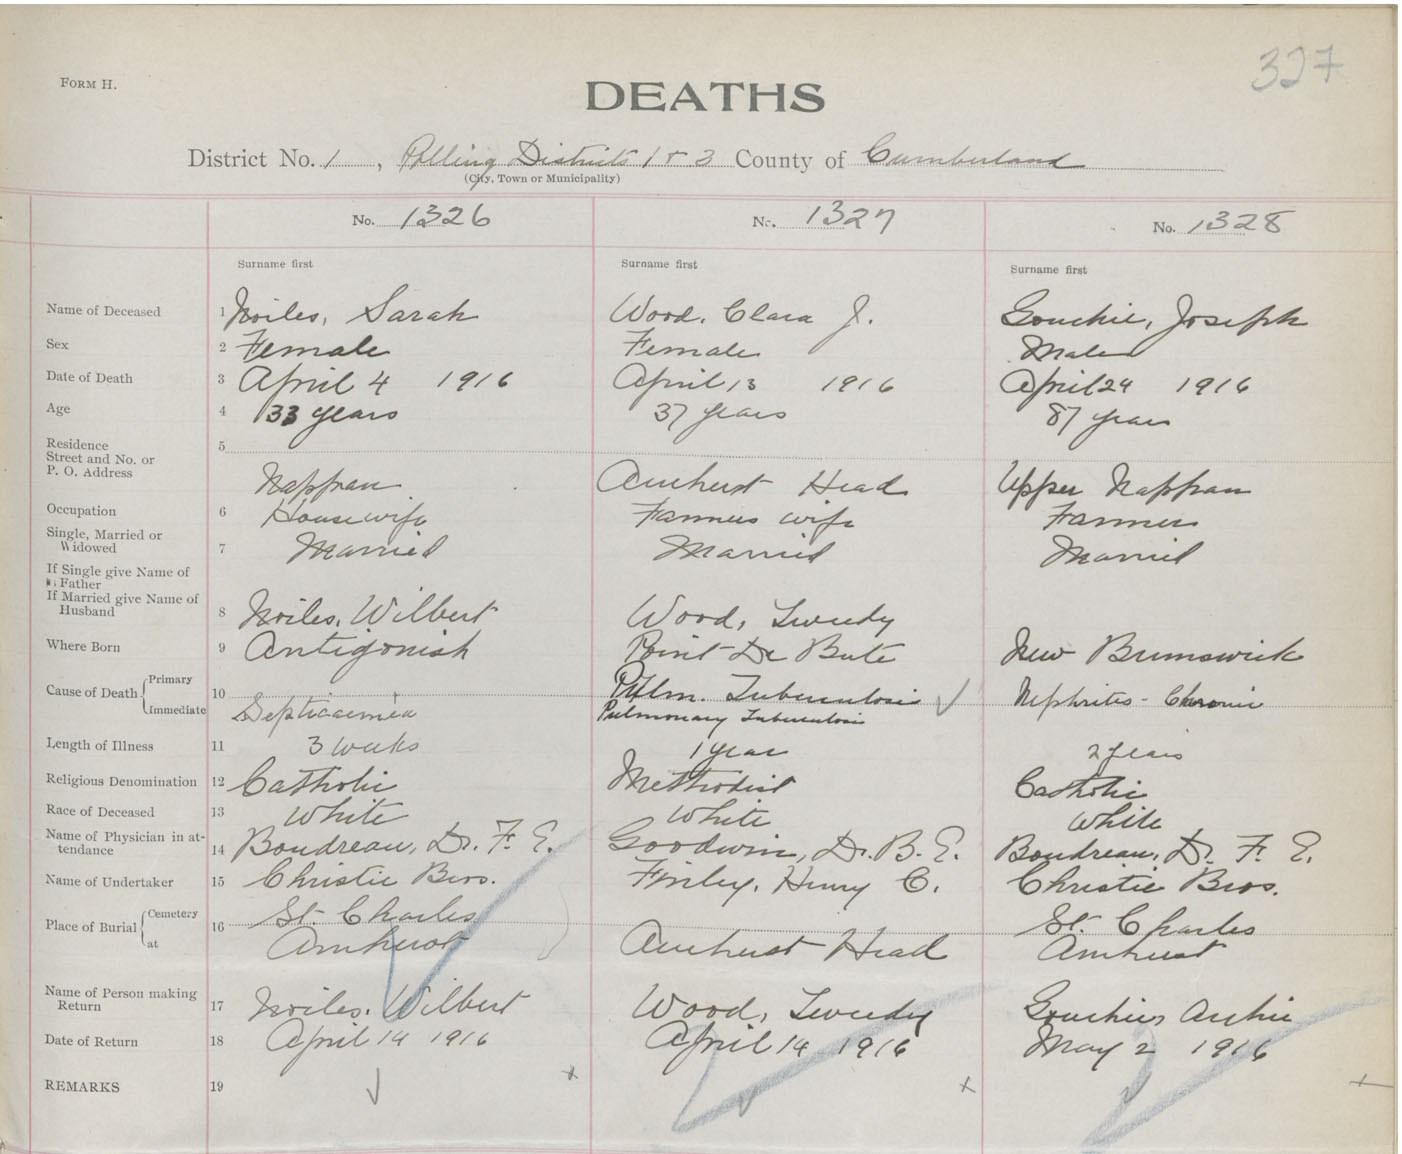 327
FORM H.
DEATHS
District No. 1, Polling Districts 1 & 3 County of Cumberland
(City, Town or Municipality)
No. 1326 No. 1327 No. 1328
Surname first Surname first Surname first
Name of Deceased 1 Noiles, Sarah Wood, Clara J. Gouchie, Joseph
Sex 2 Female Female Male
Date of Death 3 April 4 1916 April 13 1916 April 24 1916
Age 4 33 years 37 years 87 years
Residence 5
Street and No. or
P. O. Address Nappan Amherst Head Upper Nappan
Occupation 6 Housewife Farmers wife Farmer
Single, Married or
Widowed 7 Married Married Married
If Single give Name of
Father
If Married give Name of
Husband 8 Noiles, Wilbert Wood, Tweedy
Where Born 9 Antigonish Point De Bute New Brunswick
Cause of Death Primary 10 Pulm. Tuberculosis Nephrites - Chronic
Immediate Septicaemia Pulmonary Tuberculosis
Length of Illness 11 3 weeks 1 year 2 years
Religious Denomination 12 Catholic Methodist Catholic
Race of Deceased 13 White White White
Name of Physician in at-
tendance 14 Boudreau, Dr. F. E. Goodwin, Dr. B. E. Boudreau, Dr. F. E.
Name of Undertaker 15 Christie Bros. Finley, Henry C. Christie Bros.
Place of Burial Cemetery 16 St. Charles St. Charles
at Amherst Amherst Head Amherst
Name of Person making
Return 17 Noiles, Wilbert Wood, Tweedy Gouchie, Archie
Date of Return 18 April 14 1916 April 14 1916 May 2 1916
REMARKS 19